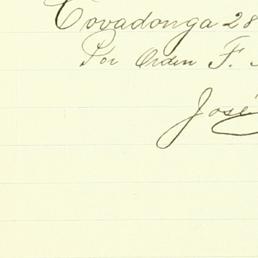 Covadonga 28
Por Orden F.
José